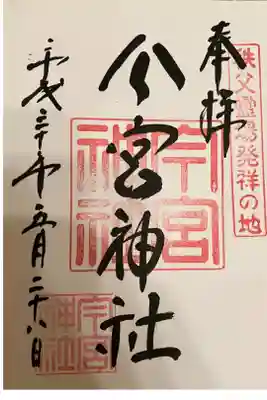 秩父靈場発祥の地
奉拝
今宮神社
今宮神社
平成三十年五月二十八日
今宮神社